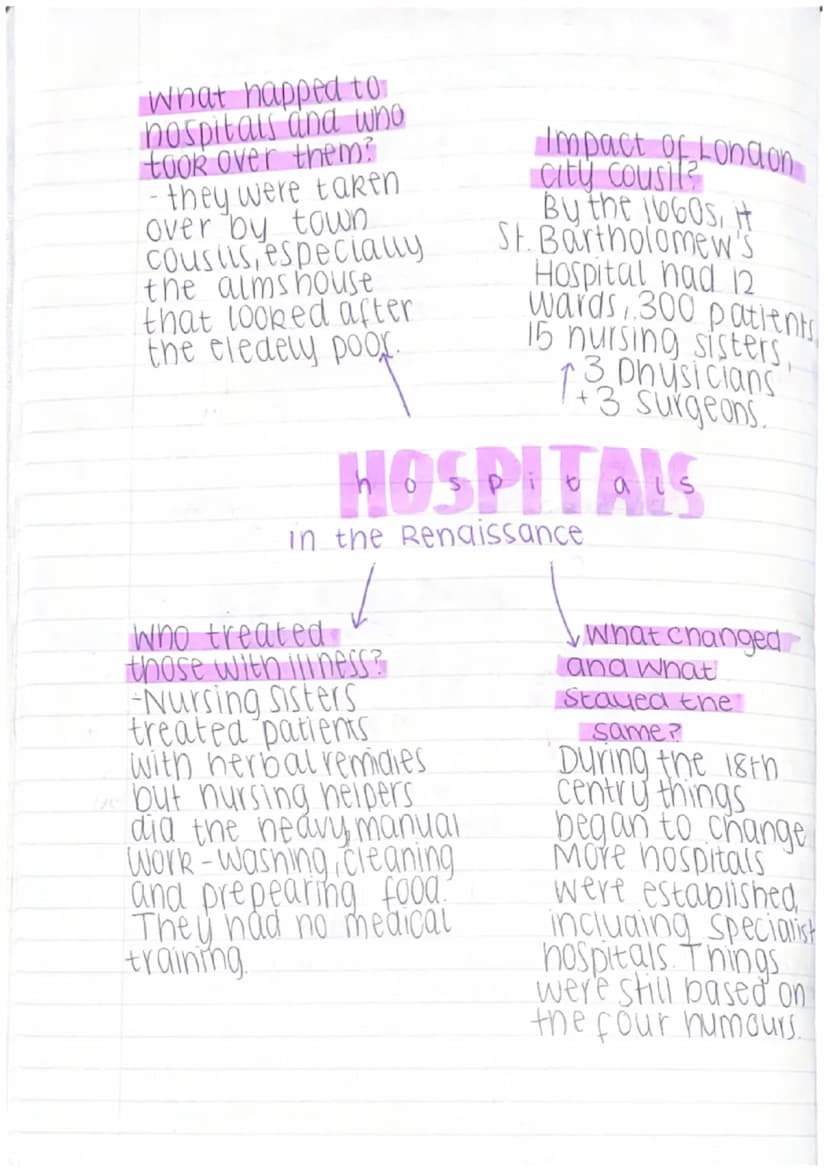 What happed to
hospitals and who
took over them?
- they were taken
over by town
cousils, especially
the almshouse
that looked after
the eledely poor.
Impact of London
city cousil?
By the 1660s, it
St. Bartholomew's
Hospital had 12
wards, 300 patients,
15 nursing sisters,
3 physicians
+ 3 surgeons.
HOSPITALS
hospitals
in the Renaissance
Who treated
those with illness?
-Nursing sisters
treated patients
with herbal remidies
but nursing helpers
did the heavy, manual
work - washing, cleaning
and prepearing food.
They had no medical
training.
What changed
and what
stayed the
same?
During the 18th
centry things
began to change
More hospitals
were established,
including specialist
hospitals. Things
were still based on
the four humours.